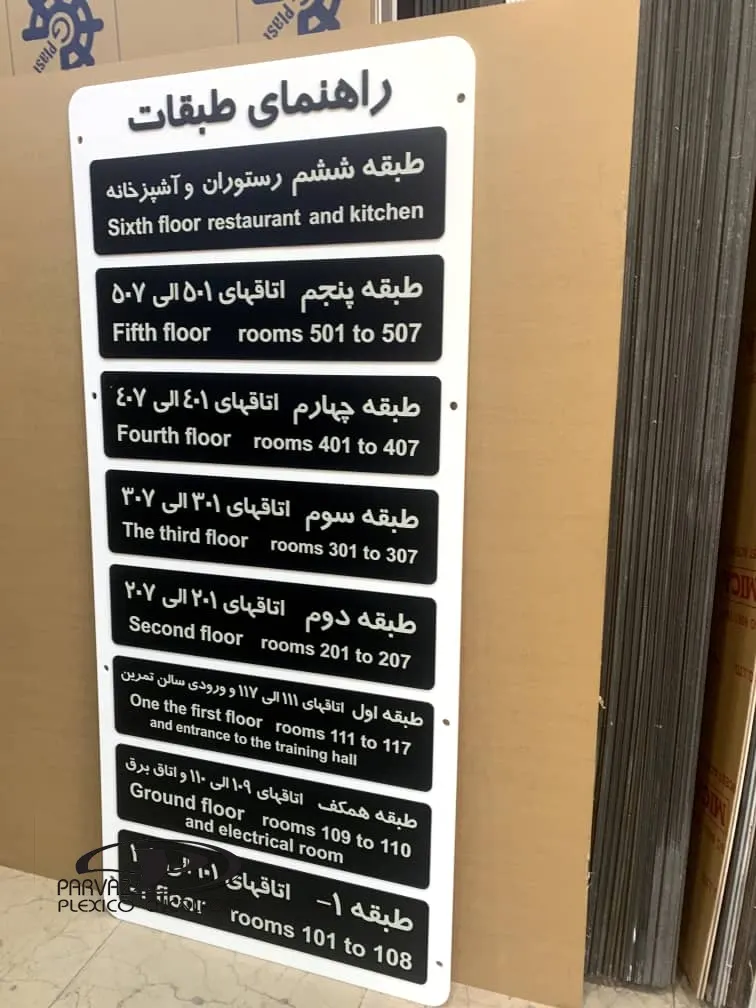 G Plast
راهنمای طبقات
طبقه ششم رستوران و آشپزخانه
Sixth floor restaurant and kitchen
طبقه پنجم اتاقهای ۵۰۱ الی ۵۰۷
Fifth floor rooms 501 to 507
طبقه چهارم اتاقهای ٤٠١ الی ٤٠٧
Fourth floor rooms 401 to 407
طبقه سوم اتاقهای ۳۰۱ الی ۳۰۷
The third floor rooms 301 to 307
طبقه دوم اتاقهای ۲۰۱ الی ۲۰۷
Second floor rooms 201 to 207
طبقه اول اتاقهای ۱۱۱ الی ۱۱۷ و ورودی سالن تمرین
One the first floor rooms 111 to 117
and entrance to the training hall
طبقه همکف اتاقهای ۱۰۹ الی ۱۱۰ و اتاق برق
Ground floor rooms 109 to 110
and electrical room
طبقه ۱- اتاقهای ۱۰۱ الی
rooms 101 to 108
PLEXICO